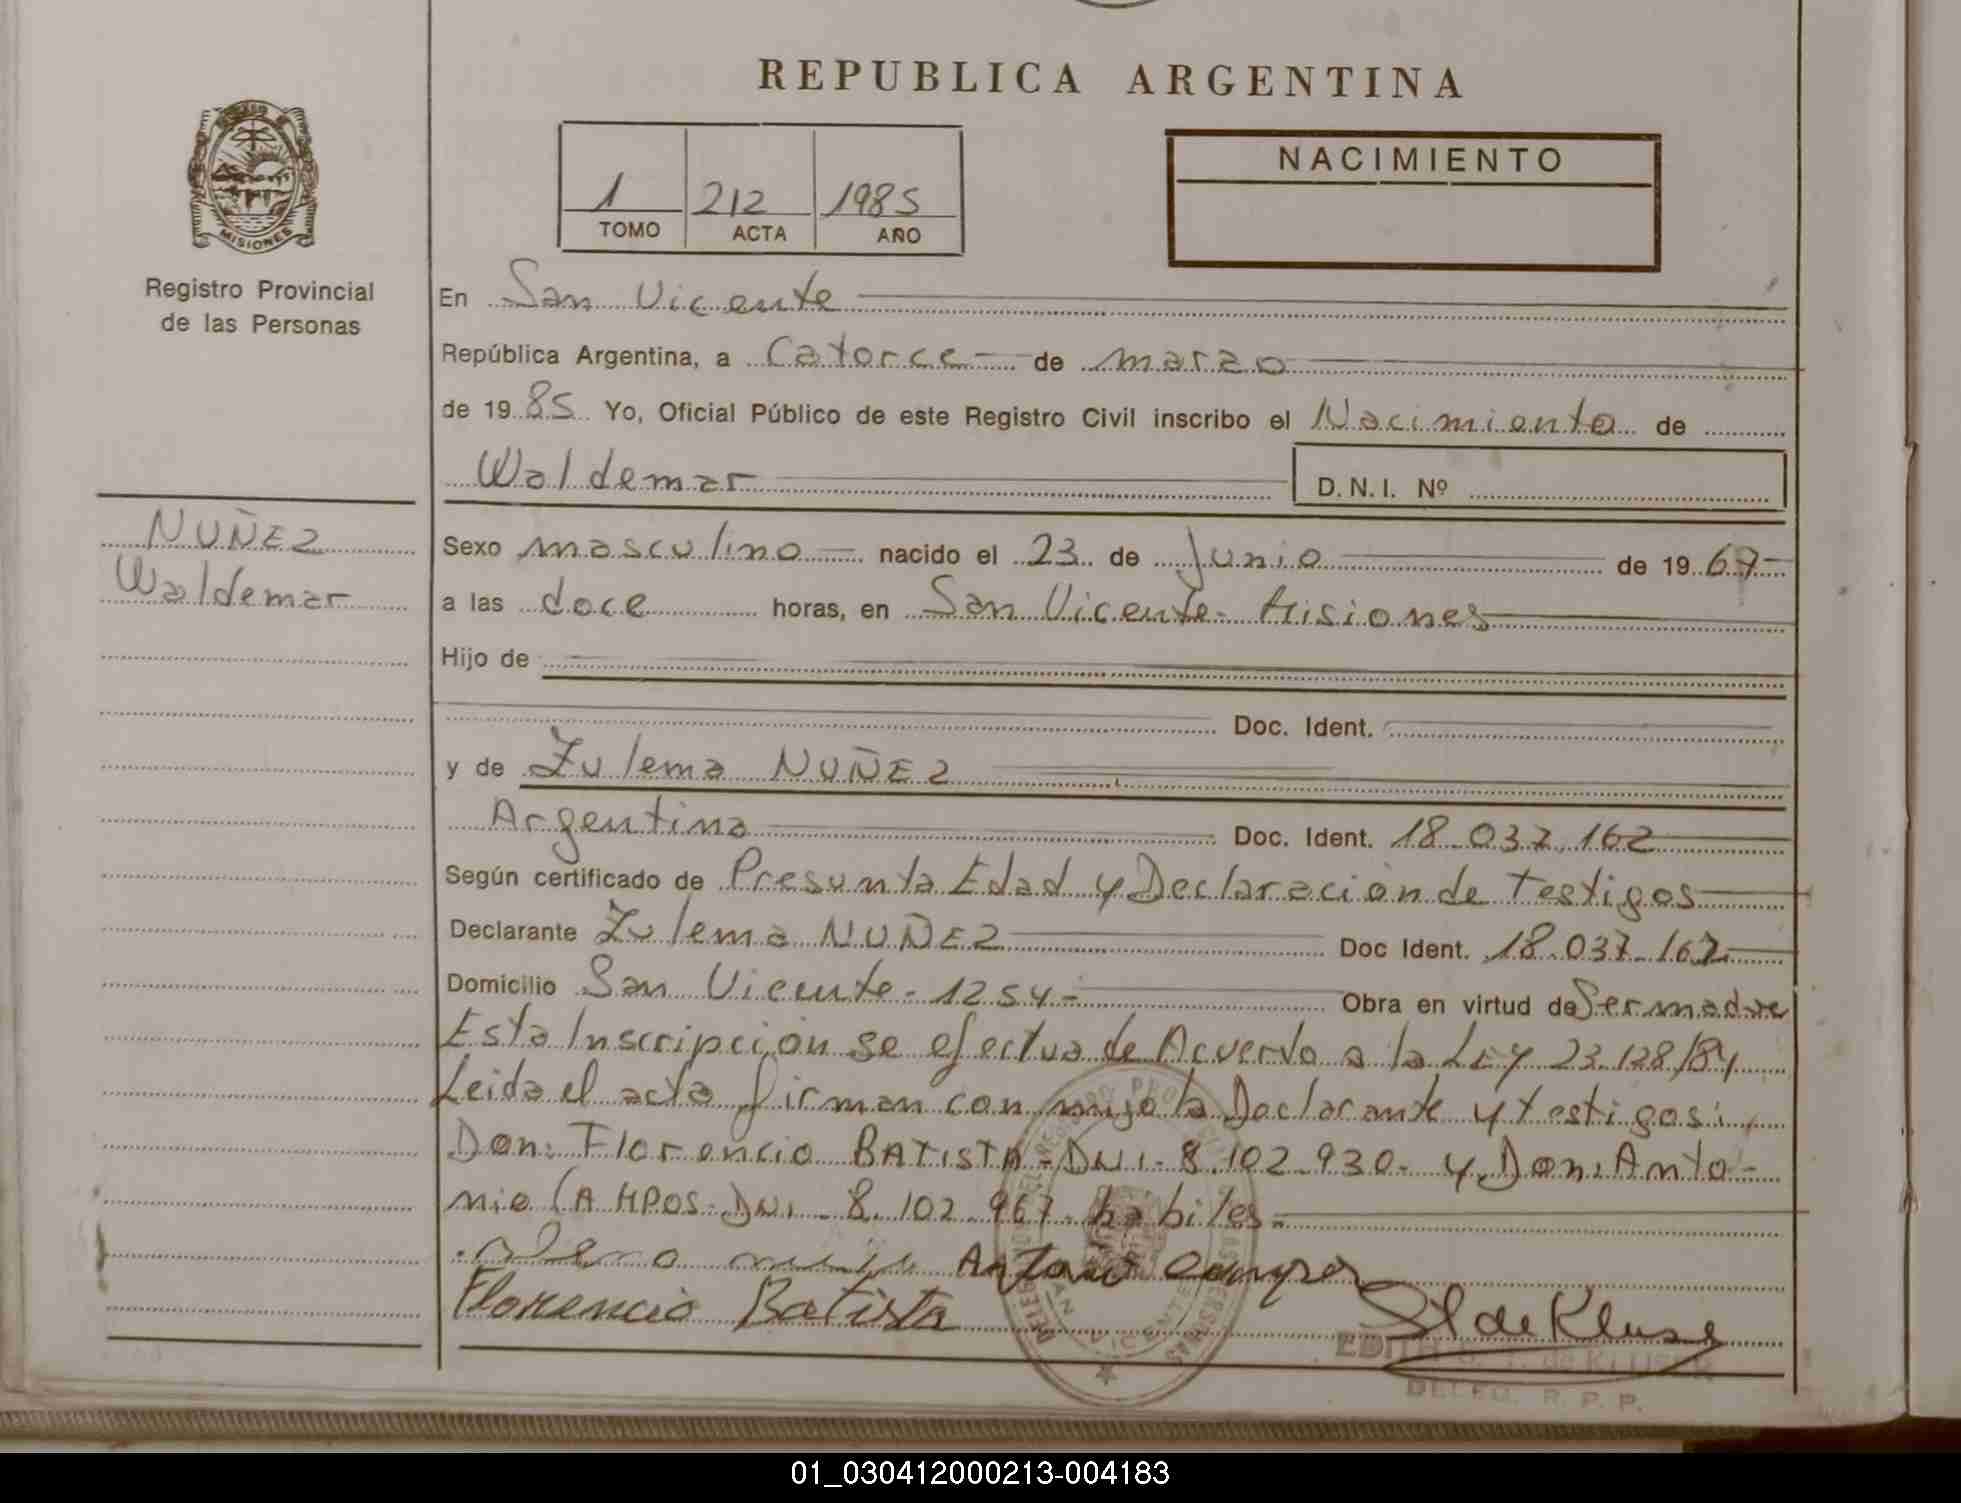 REPUBLICA ARGENTINA
MISIONES
Registro Provincial
de las Personas
1 212 1985
TOMO ACTA AÑO
NACIMIENTO
En San Vicente
República Argentina, a Catorce de marzo
de 1985 Yo, Oficial Público de este Registro Civil inscribo el Nacimiento de
Waldemar
D.N.I. Nº
NUÑEZ
Waldemar
Sexo masculino nacido el 23 de Junio de 1967
a las doce horas, en San Vicente - Misiones
Hijo de
Doc. Ident.
y de Zulema NUÑEZ
Argentina Doc. Ident. 18.037.162
Según certificado de Presunta Edad y Declaración de Testigos
Declarante Zulema NUÑEZ Doc Ident. 18.037.162
Domicilio San Vicente - 1254 - Obra en virtud de Ser madre
Esta Inscripción se efectua de Acuerdo a la LEY 23.128/84
Leida el acta firman con migo la Declarante y testigos:
Don: Florencio BATISTA - DNI - 8.102.930 - y Don: Anto-
nio CAMPOS - DNI - 8.102.967 - habiles -
Antonio Campos
Florencio Batista
St de Kluse
EDITH S. T. de KLUSE
DELEG. R. P. P.
01_030412000213-004183